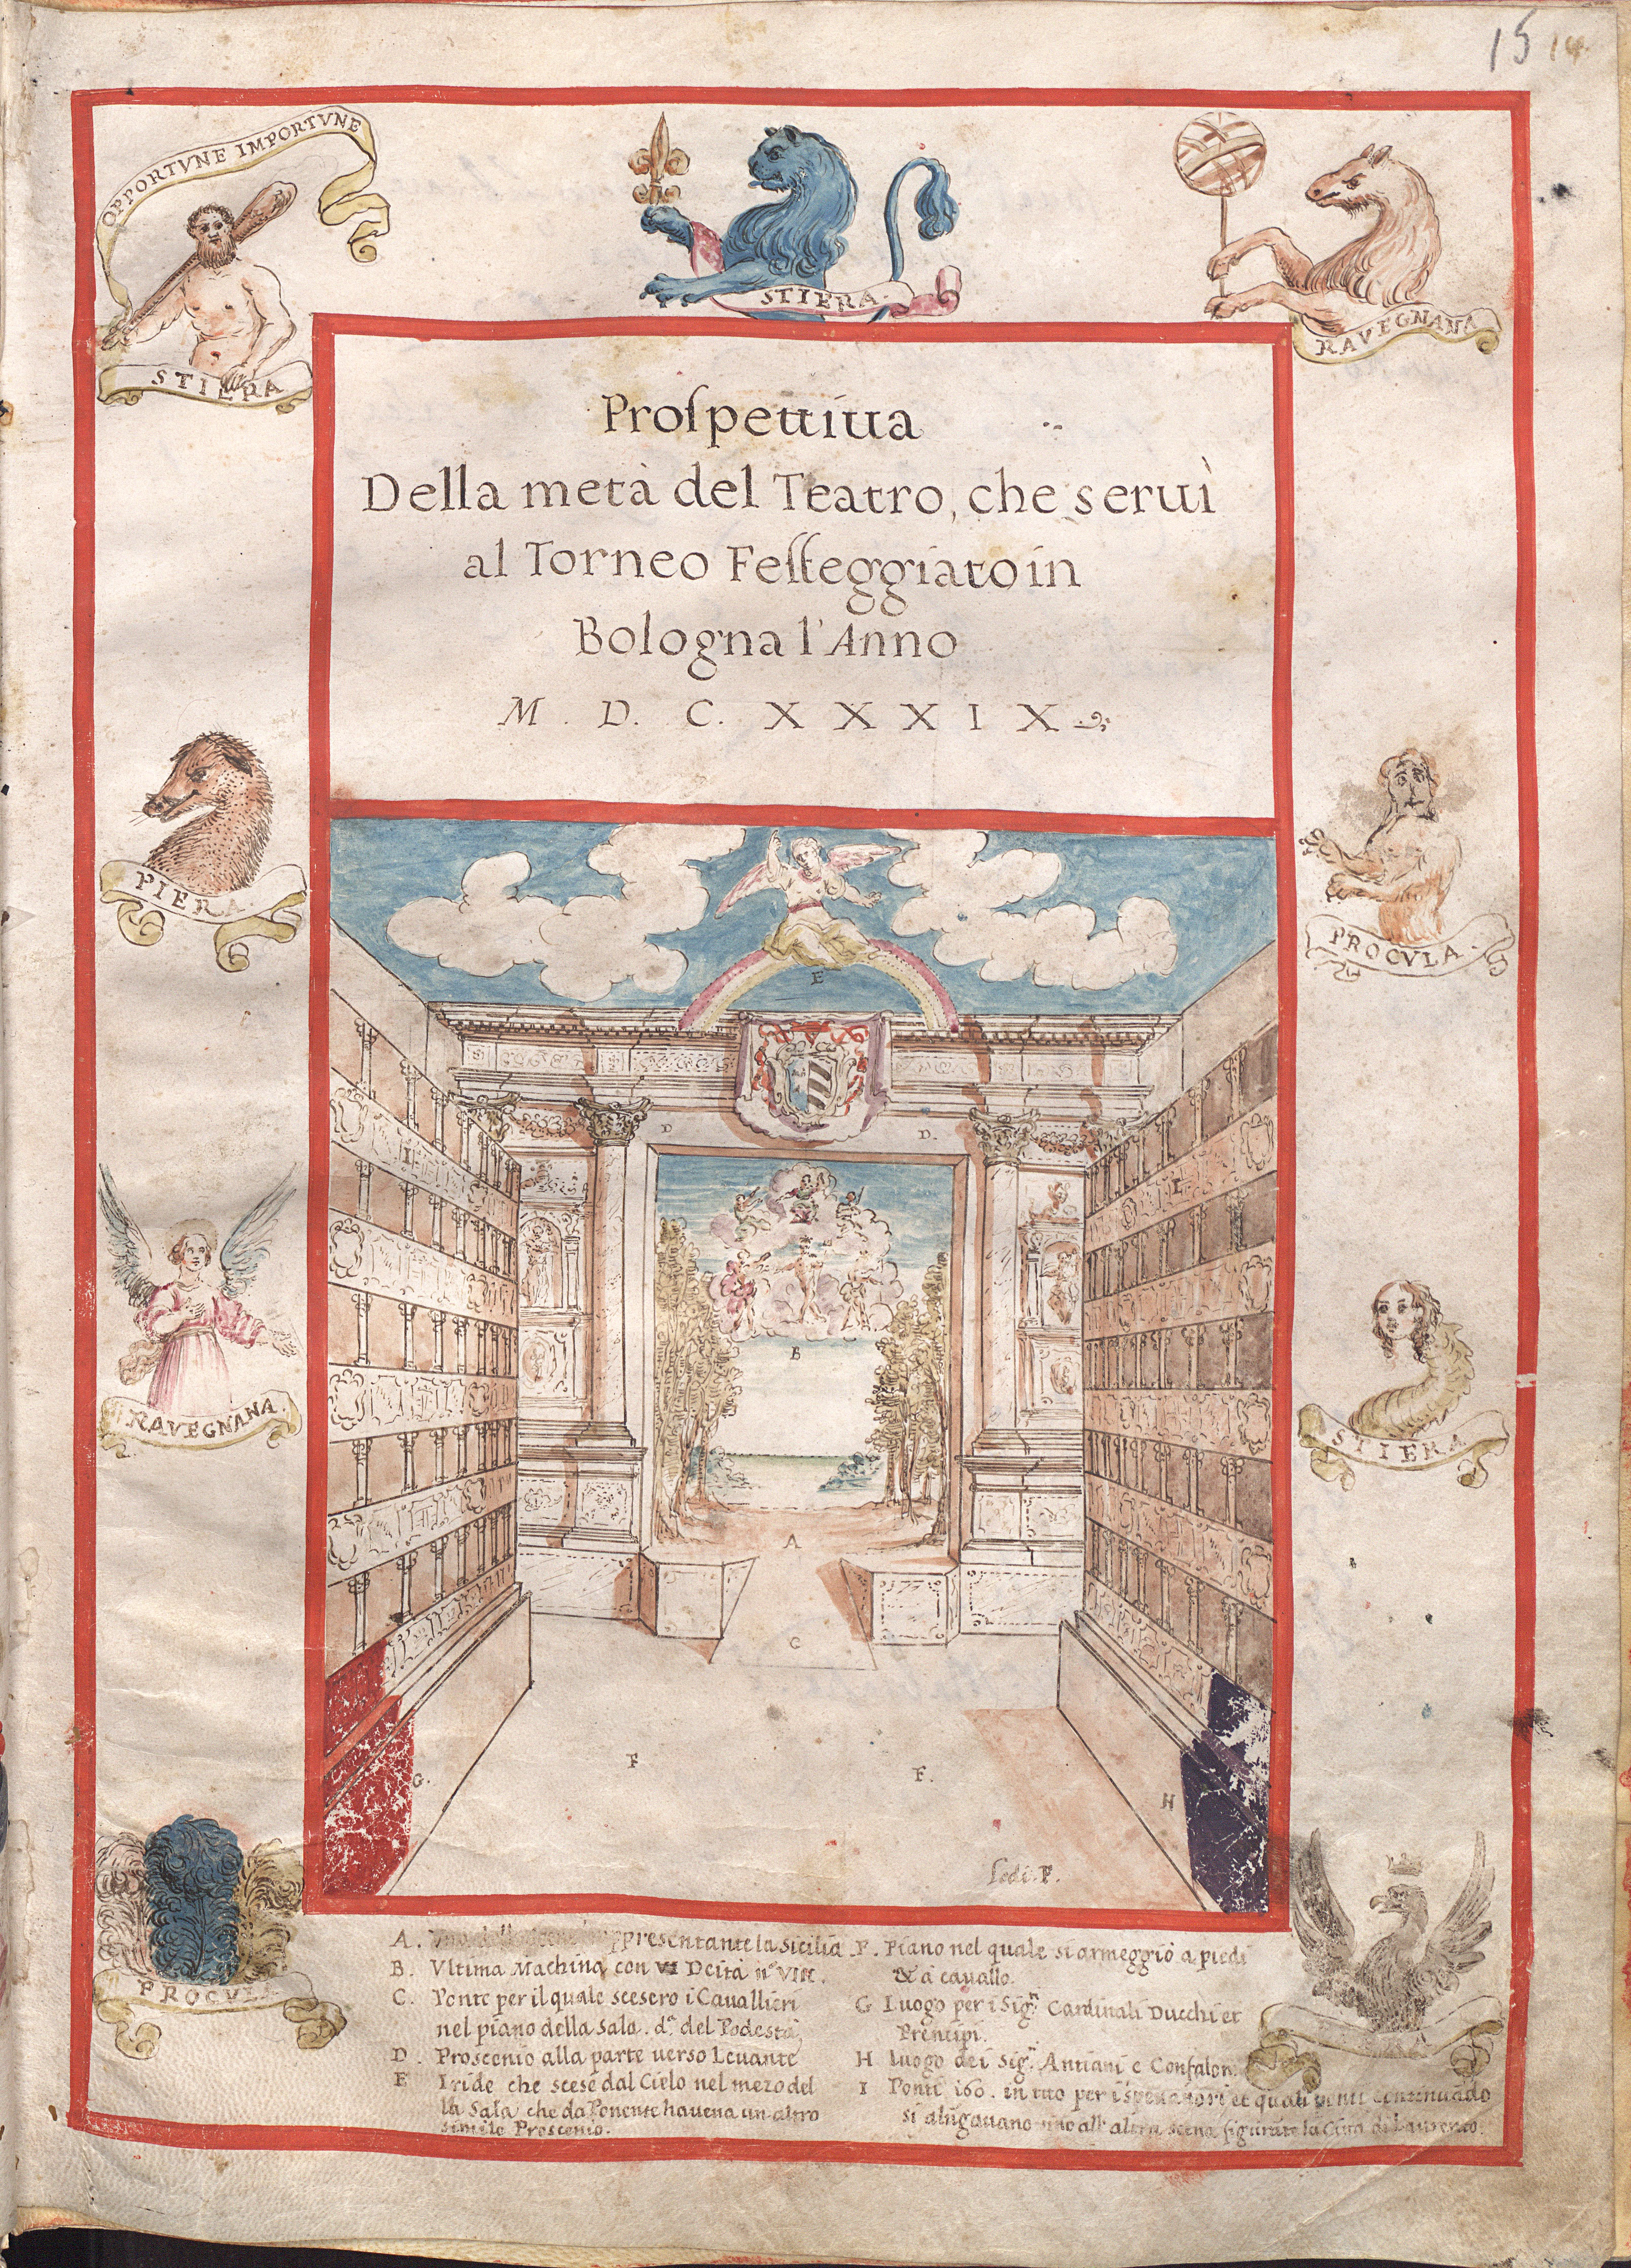 15 14
OPPORTVNE IMPORTVNE
STIERA
STIERA
RAVEGNANA
Proſpettiua
Della metà del Teatro, che seruì
al Torneo Feſteggiato in
Bologna l'Anno
M. D. C. XXXIX
PIERA
PROCVLA
RAVEGNANA
STIERA
E
D
D.
I
I
B
A
C
G.
F
F.
H
PROCVL
A. rappresentante la Sicilia
B. Vltima Machina con VI Deità n.º VIII.
C. Ponte per il quale scesero i Cauallieri
nel piano della Sala. d.ª del Podestà
D. Proscenio alla parte uerso Leuante
E Iride che scese dal Cielo nel mezo del
la Sala che da Ponente haueua un altro
simile Proscenio.
F. Piano nel quale si armeggiò a piedi
& à cauallo.
G Luogo per i Sig.ri Cardinali Ducchi et
Prencipi.
H Luogo dei Sig.ri Antiani e Confalon.
I Ponti 160. in tuto per i spettatori et quali continuādo
si alūgauano sino all' altra scena figurāte la Città di